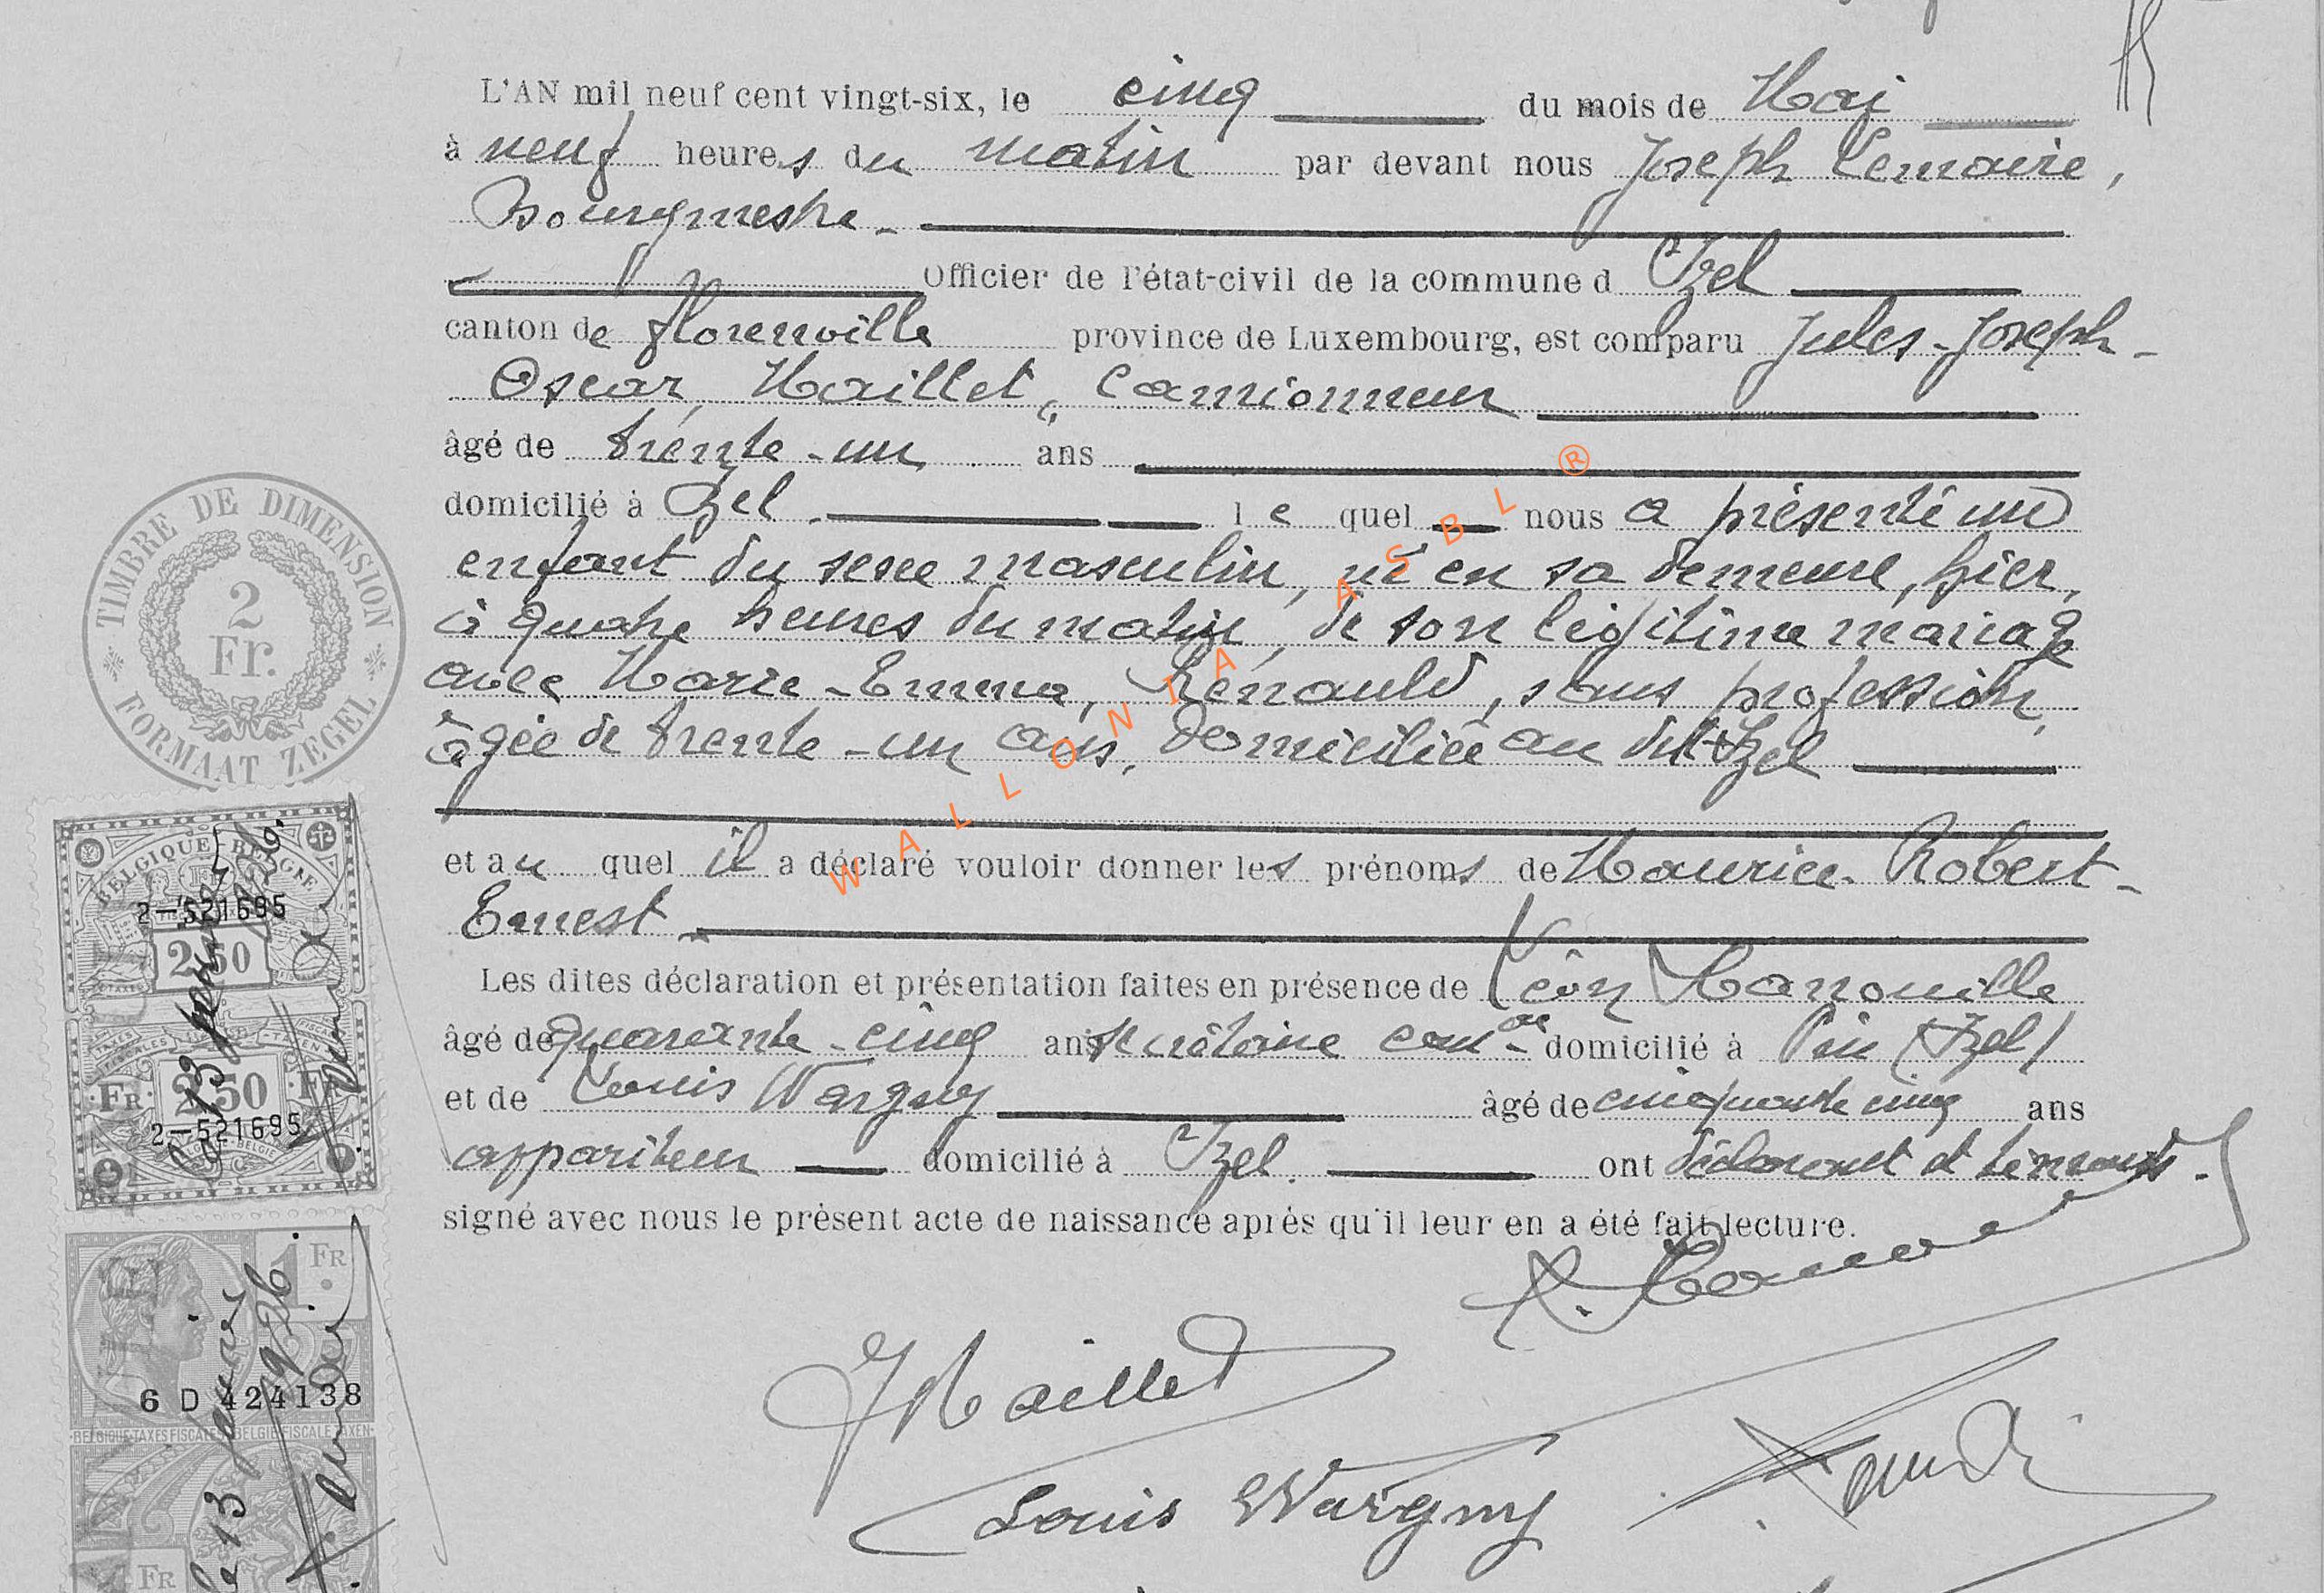 L'AN mil neuf cent vingt-six, le cinq du mois de Mai
à neuf heures du matin par devant nous Joseph Lemaire,
Bourgmestre
Officier de l'état-civil de la commune d Izel
canton de Florenville province de Luxembourg, est comparu Jules-Joseph-
Oscar Maillet, Camionneur
âgé de trente-un ans
domicilié à Izel le quel nous a présenté un
enfant du sexe masculin, né en sa demeure, hier,
à quatre heures du matin, de son légitime mariage
avec Marie-Emma, Renauld, sans profession,
âgée de trente-un ans, domiciliée au dit Izel
et au quel il a déclaré vouloir donner les prénoms de Maurice-Robert-
Ernest
Les dites déclaration et présentation faites en présence de Léon Manouille
âgé de quarante-cinq ans secrétaire comal domicilié à Pin (Izel)
et de Louis Wargny âgé de cinquante cinq ans
appariteur domicilié à Izel. ont déclarant et témoins
signé avec nous le présent acte de naissance après qu'il leur en a été fait lecture.
JMaillet
Louis Wargny
TIMBRE DE DIMENSION
2
Fr.
FORMAAT ZEGEL
BELGIQUE BELGIE
2-521695
2 50
Fr. 2 50 Fr.
2-521695
Le 13 janvier 1926.
1 Fr
6 D 424138
BELGIQUE-TAXES FISCALES BELGIE-FISCALE TAXEN
Le 13 janvier 1926.
1 Fr
WALLONIA ASBL ®